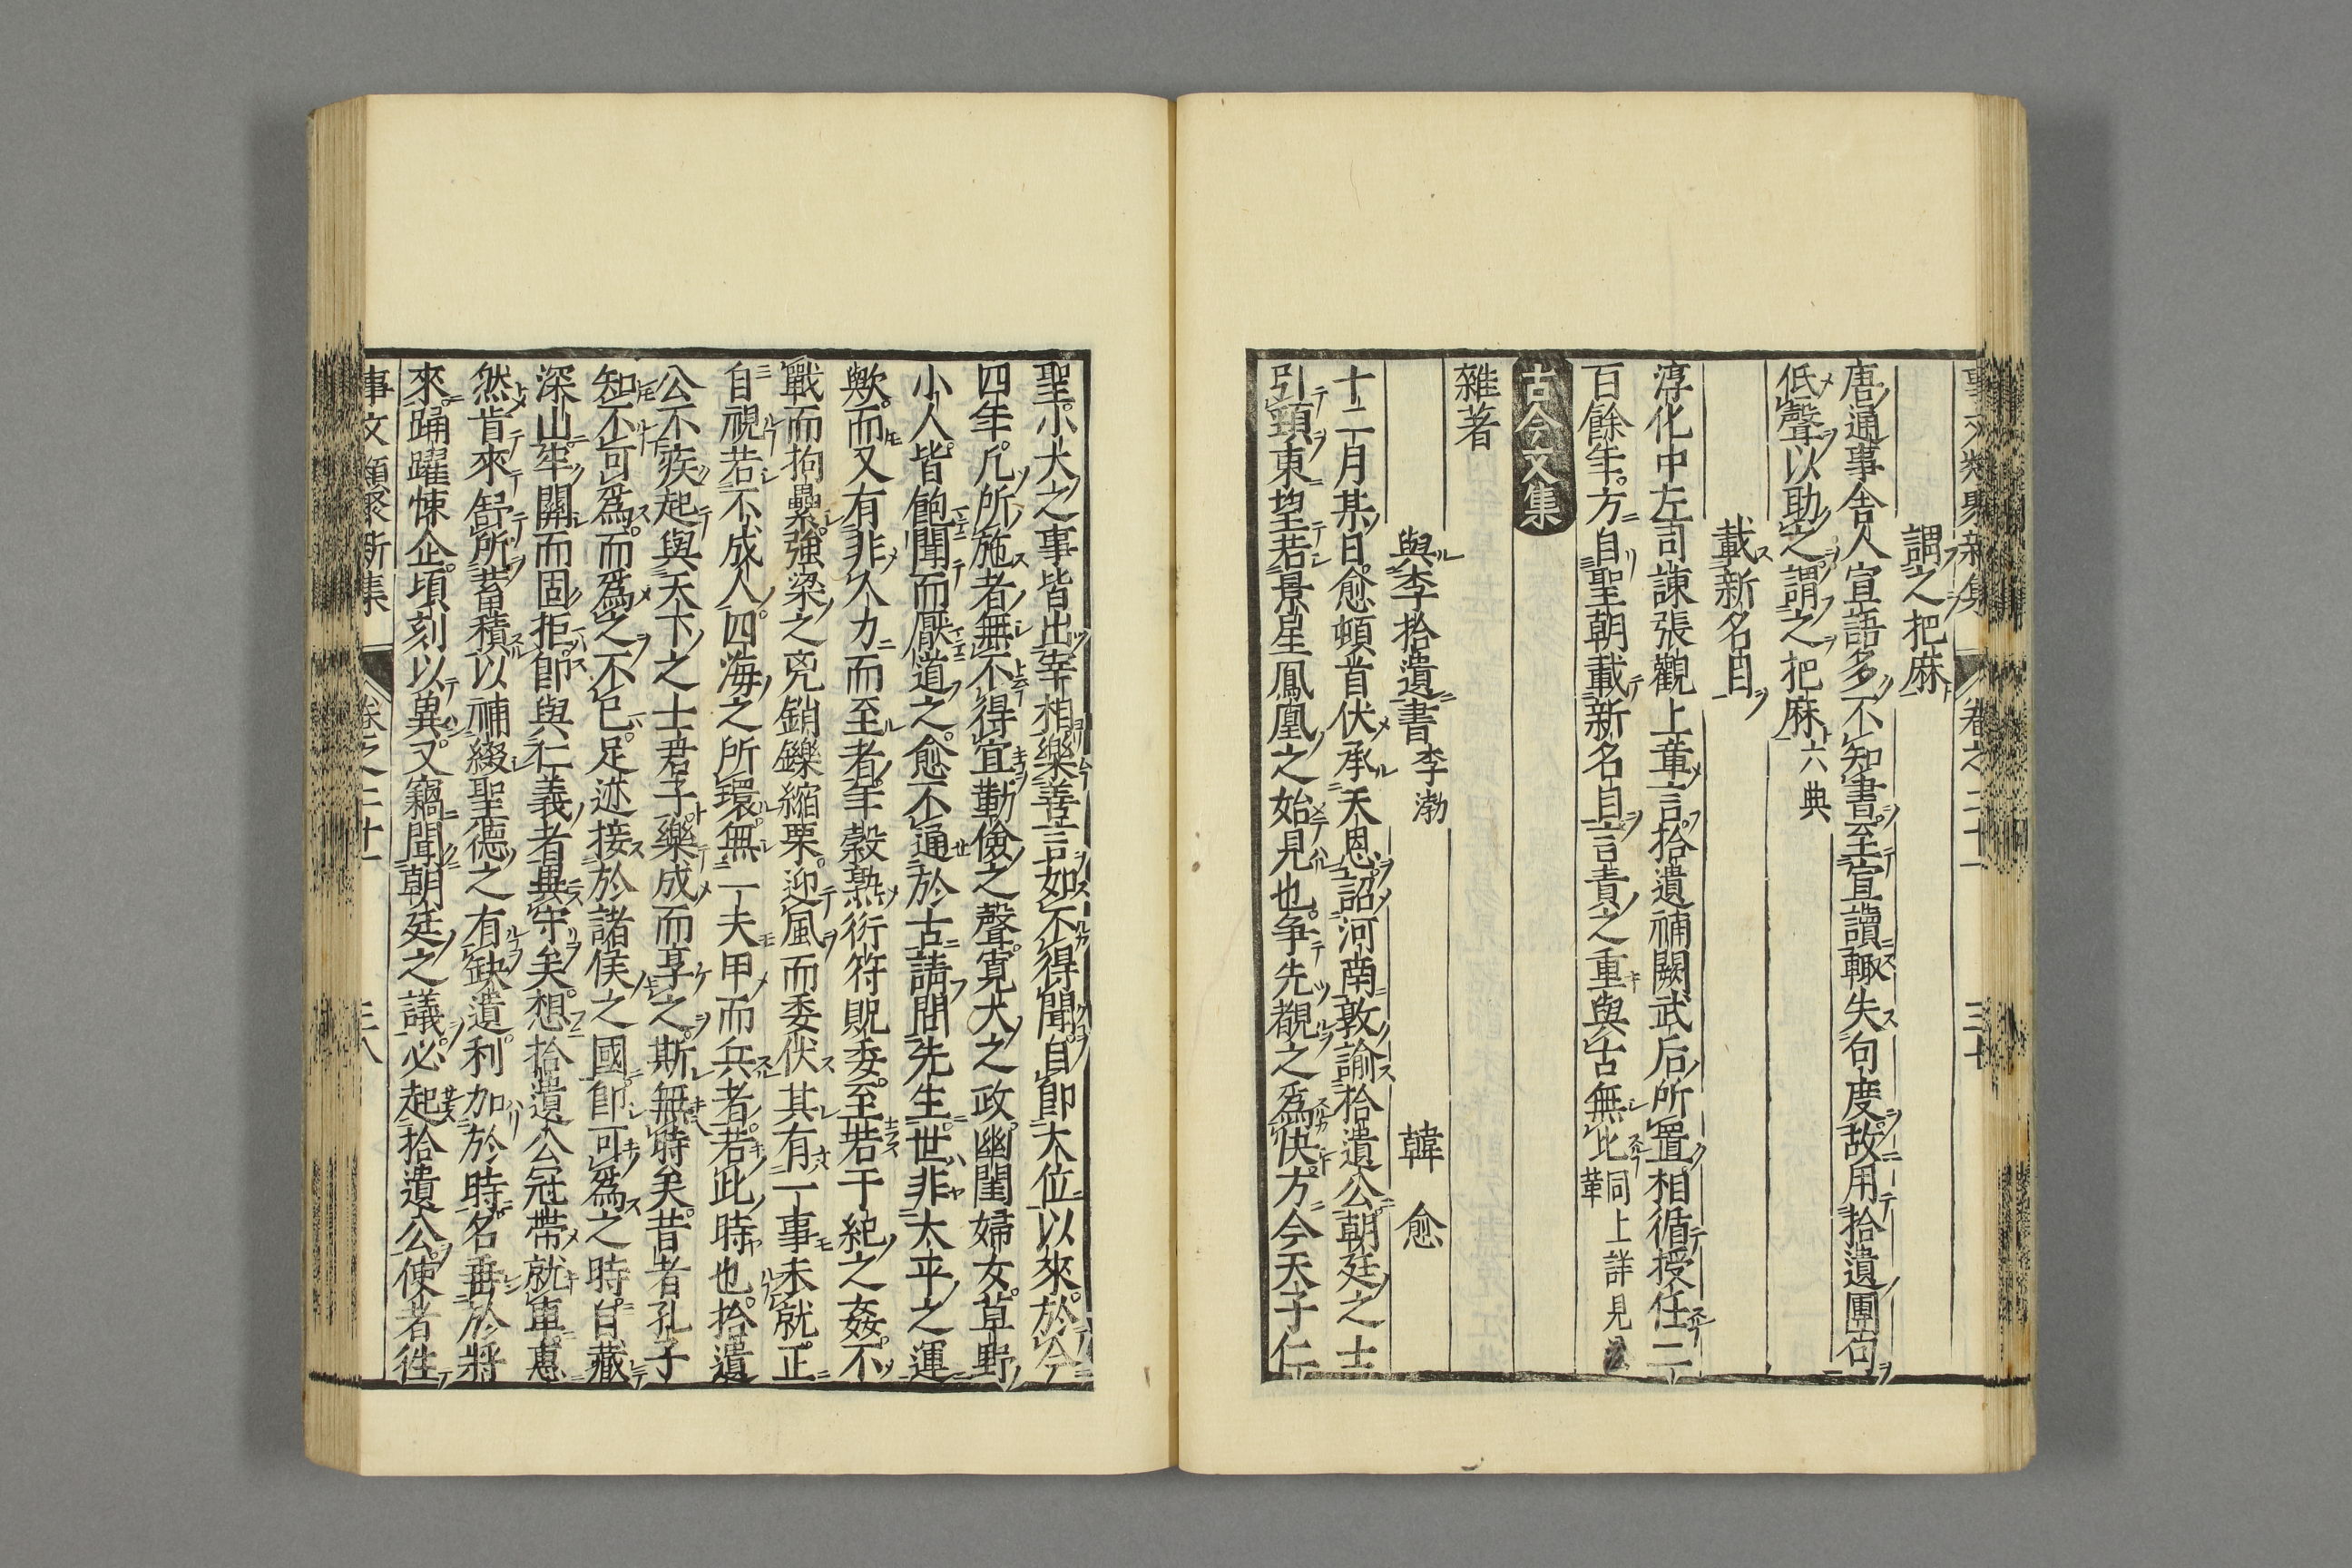 事文類聚新集 卷之二十一 三十
謂之把麻
唐通事舍人宣語多不知書至宣讀輙失句度故用拾遺團句
低聲以助之謂之把麻六典
載新名目
淳化中左司諫張觀上章言拾遺補闕武后所置相循授任二
百餘年方自聖朝載新名自言責之重與古無比同上詳見
華
古今文集
雜著
與李拾遺書李渤 韓愈
十二月某日愈頓首伏承天恩詔河南敦諭拾遺公朝廷之士
引頸東望若景星鳳凰之始見也爭先覩之爲快方今天子仁
聖小大之事皆出宰相樂善言如不得聞自即大位以來於今
四年凡所施者無不得宜勤儉之聲寬大之政幽閨婦女草野
小人皆飽聞而厭道之愈不通於古請問先生世非太平之運
歟而又有非人力而至者年穀熟衍符貺委至若干紀之姦不
戰而拘纍強梁之兇銷鑠縮栗迎風而委伏其有一事未就正
自視若不成人四海之所環無一夫甲而兵者若此時也拾遺
公不疾起與天下之士君子樂成而享之斯無時矣昔者孔子
知不可爲而爲之不已足迹接於諸侯之國即可爲之時自藏
深山牢關而固拒即與仁義者異守矣想拾遺公冠帶就車惠
然肯來舒所蓄積以補綴聖德之有缺遺利加於時名垂於將
來踊躍悚企頃刻以冀又竊聞朝廷之議必起拾遺公使者往
事文類聚新集 卷之二十一 三八